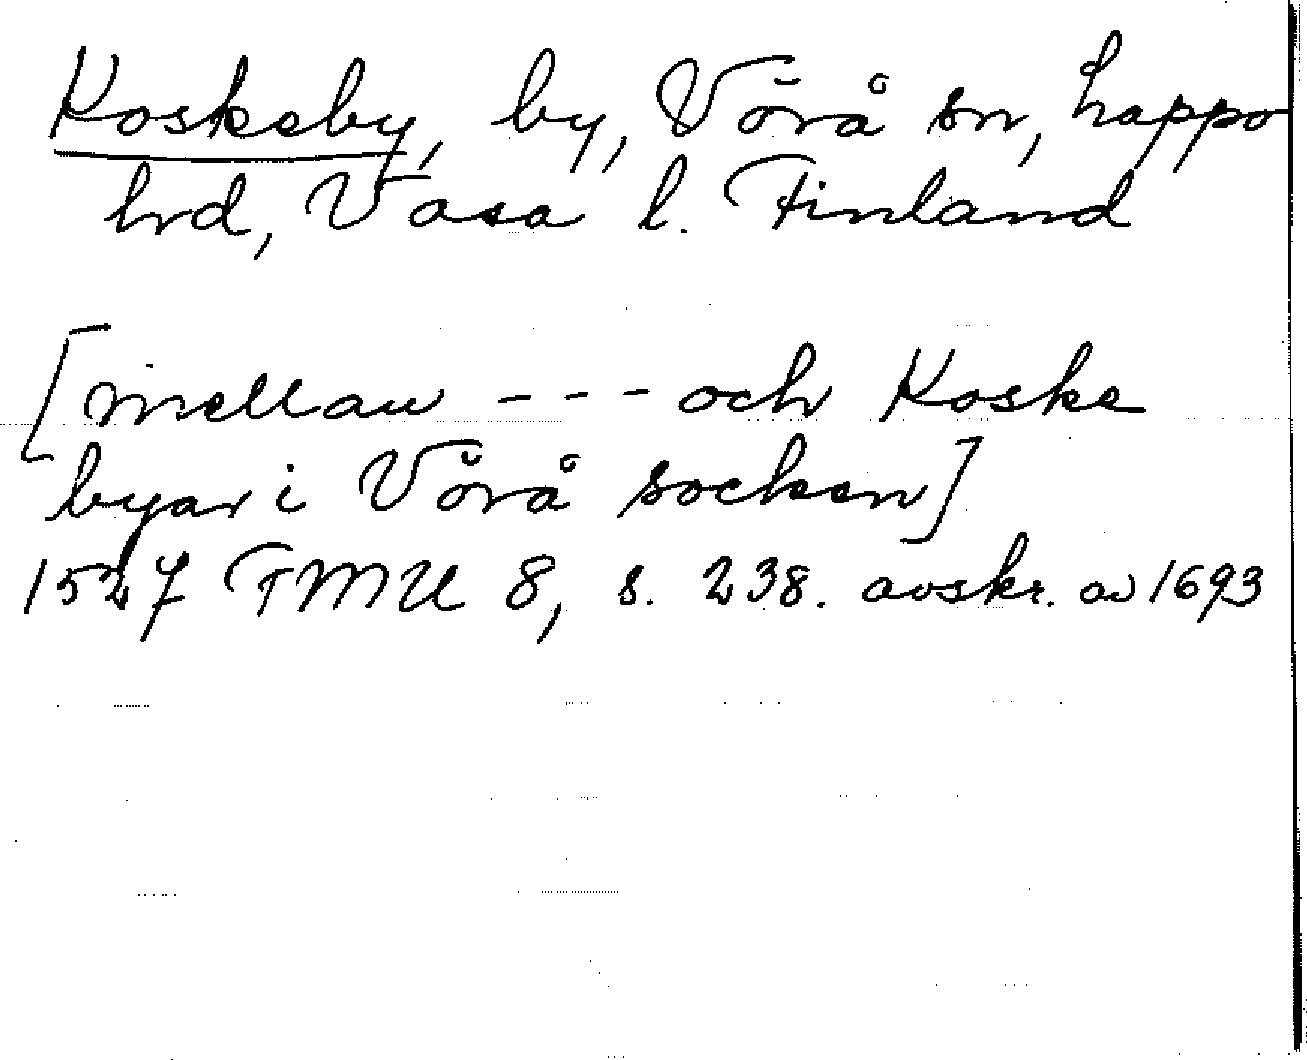 Koskeby, by, Vörå sn, Lappo
hrd, Vasa l. Finland
[mellan --- och Koske
byar i Vörå socken]
1527 FMU 8, s. 238. avskr. av 1693